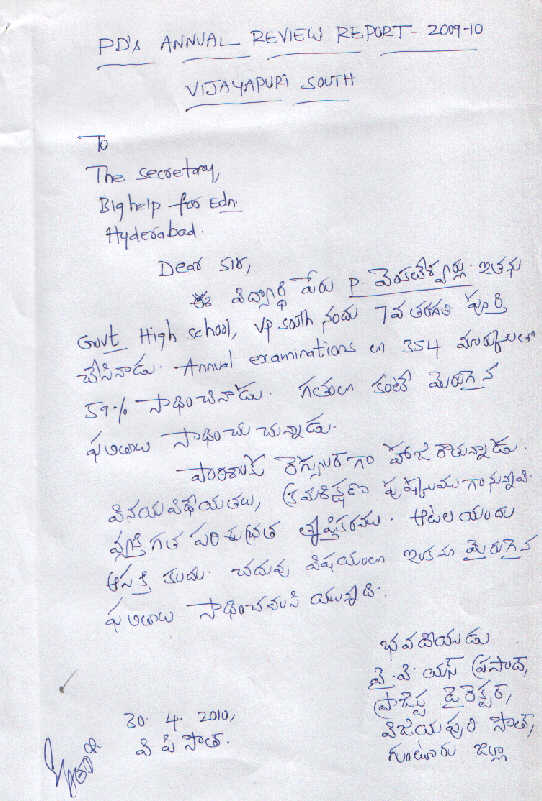 PD's ANNUAL REVIEW REPORT- 2009-10
VIJAYAPURI SOUTH
To
The secretary,
Big help for Edn
Hyderabad.
Dear Sir,
ఈ విద్యార్థి పేరు P. వెంకటేశ్వర్లు. ఇతను
Govt High school, VP south నందు 7వ తరగతి పూర్తి
చేసినాడు. Annual examinations లో 354 మార్కులతో
59% సాధించినాడు. గతంలో కంటే మెరుగైన
ఫలితాలు సాధించు చున్నాడు.
పాఠశాలకు రెగ్యులర్ గా హాజరౌతున్నాడు.
వినయవిధేయతలు, క్రమశిక్షణ పుష్కలముగానున్నవి.
వ్యక్తిగత పరిశుభ్రత తృప్తికరము. ఆటల యందు
ఆసక్తి కలదు. చదువు విషయంలో ఇంకనూ మెరుగైన
ఫలితాలు సాధించవలసి యున్నది.
భవదీయుడు
వై. వి యస్ ప్రసాద్,
ప్రాజెక్టు డైరెక్టర్,
విజయపురి సౌత్,
గుంటూరు జిల్లా
30. 4. 2010,
వి పి సౌత్.